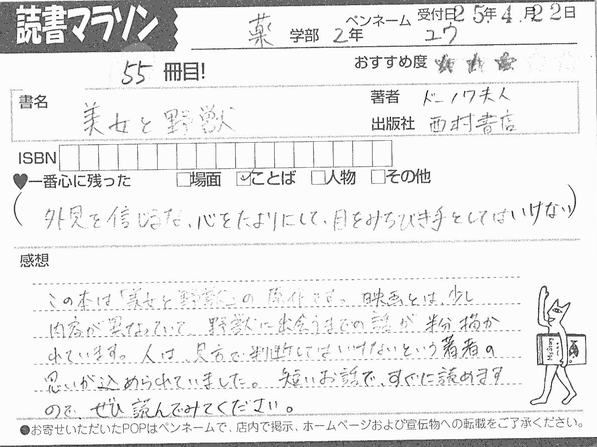 読書マラソン
薬 学部 2年 ペンネーム ユウ 受付日25年4月22日
55 冊目! おすすめ度
書名 美女と野獣
著者 ボーノワ夫人
出版社 西村書店
ISBN
♥一番心に残った □場面 ☑ことば □人物 □その他
(外見を信じるな、心をたよりにして、目をみちびき手としてはいけない)
感想
この本は「美女と野獣」の原作です。映画とは、少し
内容が異なっていて、野獣に出会うまでの話が半分描か
れています。人は、見方で判断してはいけないという著者の
思いが込められていました。短いお話で、すぐに読めます
ので、ぜひ読んでみてください。
●お寄せいただいたPOPはペンネームで、店内で掲示、ホームページおよび宣伝物への転載をご了承ください。